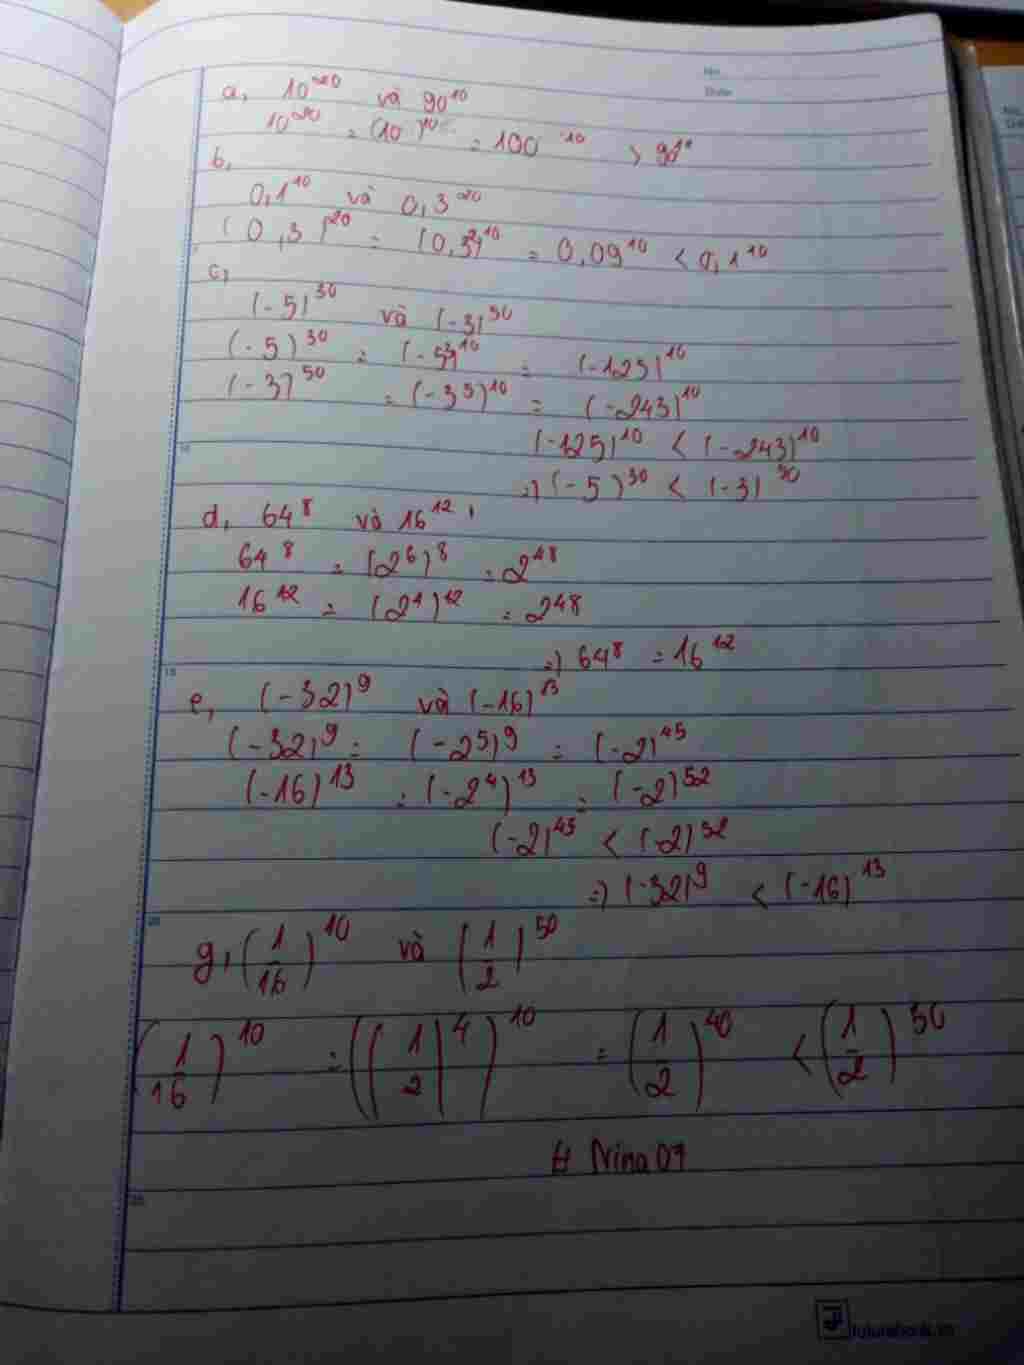 No.
Date
a, 10²⁰ và 90¹⁰
10²⁰ = (10²)¹⁰ = 100¹⁰ > 90¹⁰
b,
0,1¹⁰ và 0,3²⁰
(0,3)²⁰ = (0,3²)¹⁰ = 0,09¹⁰ < 0,1¹⁰
c,
(-5)³⁰ và (-3)⁵⁰
(-5)³⁰ = (-5³)¹⁰ = (-125)¹⁰
(-3)⁵⁰ = (-3⁵)¹⁰ = (-243)¹⁰
(-125)¹⁰ < (-243)¹⁰
=) (-5)³⁰ < (-3)⁵⁰
d, 64⁸ và 16¹²
64⁸ = (2⁶)⁸ = 2⁴⁸
16¹² = (2⁴)¹² = 2⁴⁸
=) 64⁸ = 16¹²
e, (-32)⁹ và (-16)¹³
(-32)⁹ = (-2⁵)⁹ = (-2)⁴⁵
(-16)¹³ = (-2⁴)¹³ = (-2)⁵²
(-2)⁴⁵ < (-2)⁵²
=) (-32)⁹ < (-16)¹³
g, (1/16)¹⁰ và (1/2)⁵⁰
(1/16)¹⁰ = ((1/2)⁴)¹⁰ = (1/2)⁴⁰ < (1/2)⁵⁰
# Nina07